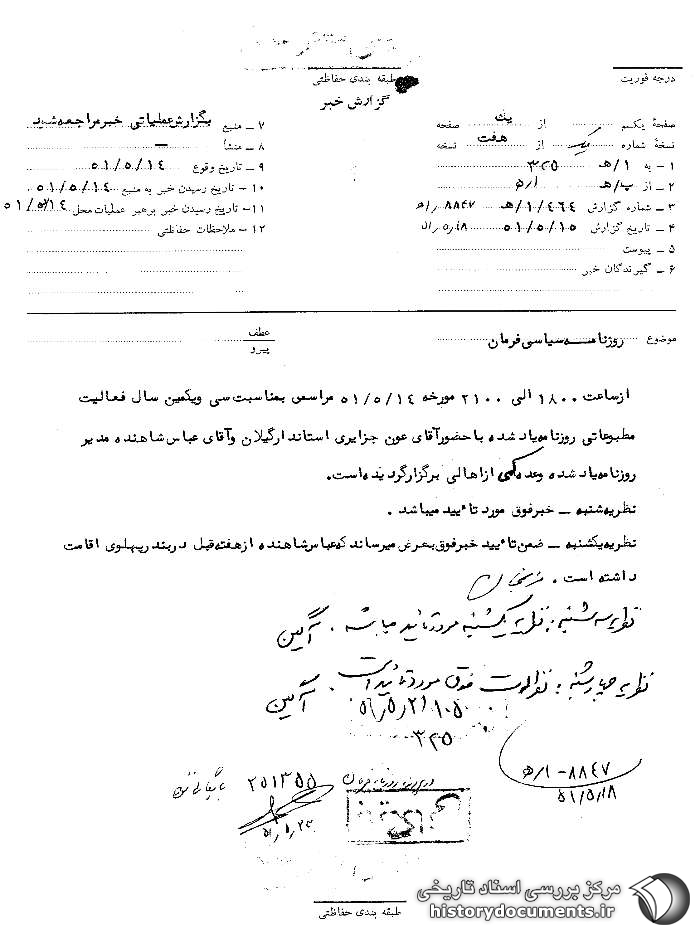 طبقه بندی حفاظتی
درجه فوریت
گزارش خبر
صفحهٔ یکم از یک صفحه
نسخهٔ شماره یک از هفت نسخه
۱ – به ۱/ﻫ ۳۲۵
۲ – از ب/ﻫ ۱/ﻫ
۳ – شماره گزارش ۴۶۴/۱/ﻫ ۸۸۴۷/ﻫ۱
۴ – تاریخ گزارش ۵۱/۵/۱۵ ۵۱/۵/۱۸
۵ – پیوست
۶ – گیرندگان خبر
۷ – منبع بگزارش عملیاتی خبر مراجعه شود
۸ – منشأ –
۹ – تاریخ وقوع ۵۱/۵/۱۴
۱۰ – تاریخ رسیدن خبر به منبع ۵۱/۵/۱۴
۱۱ – تاریخ رسیدن خبر برهبر عملیات محل ۵۱/۵/۱۴
۱۲ – ملاحظات حفاظتی
موضوع روزنامه سیاسی فرمان
عطف
پیرو
ازساعت ۱۸۰۰ الی ۲۱۰۰ مورخه ۵۱/۵/۱۴ مراسمی بمناسبت سی ویکمین سال فعالیت
مطبوعاتی روزنامه یاد شده با حضورآقای عون جزایری استاندارگیلان وآقای عباس شاهنده مدیر
روزنامه یاد شده وعده کمی ازاهالی برگزارگردیده است.
نظریه شنبه – خبرفوق مورد تائید میباشد .
نظریه یکشنبه – ضمن تائید خبرفوق بعرض میرساند که عباس شاهنده ازهفته قبل دربندرپهلوی اقامت
داشته است .
نظریه سه شنبه : نظریه یکشنبه مورد تائید میباشد . آگین
نظریه چهارشنبه : نظرات فوق مورد تائید است . آگین
۳۲۵
۸۸۴۷–ﻫ۱
۵۱/۵/۱۸
در پرونده روزنامه فرمان ۲۵۱۳۵۵ بایگانی شود
طبقه بندی حفاظتی
مرکز بررسی اسناد تاریخی
historydocuments.ir